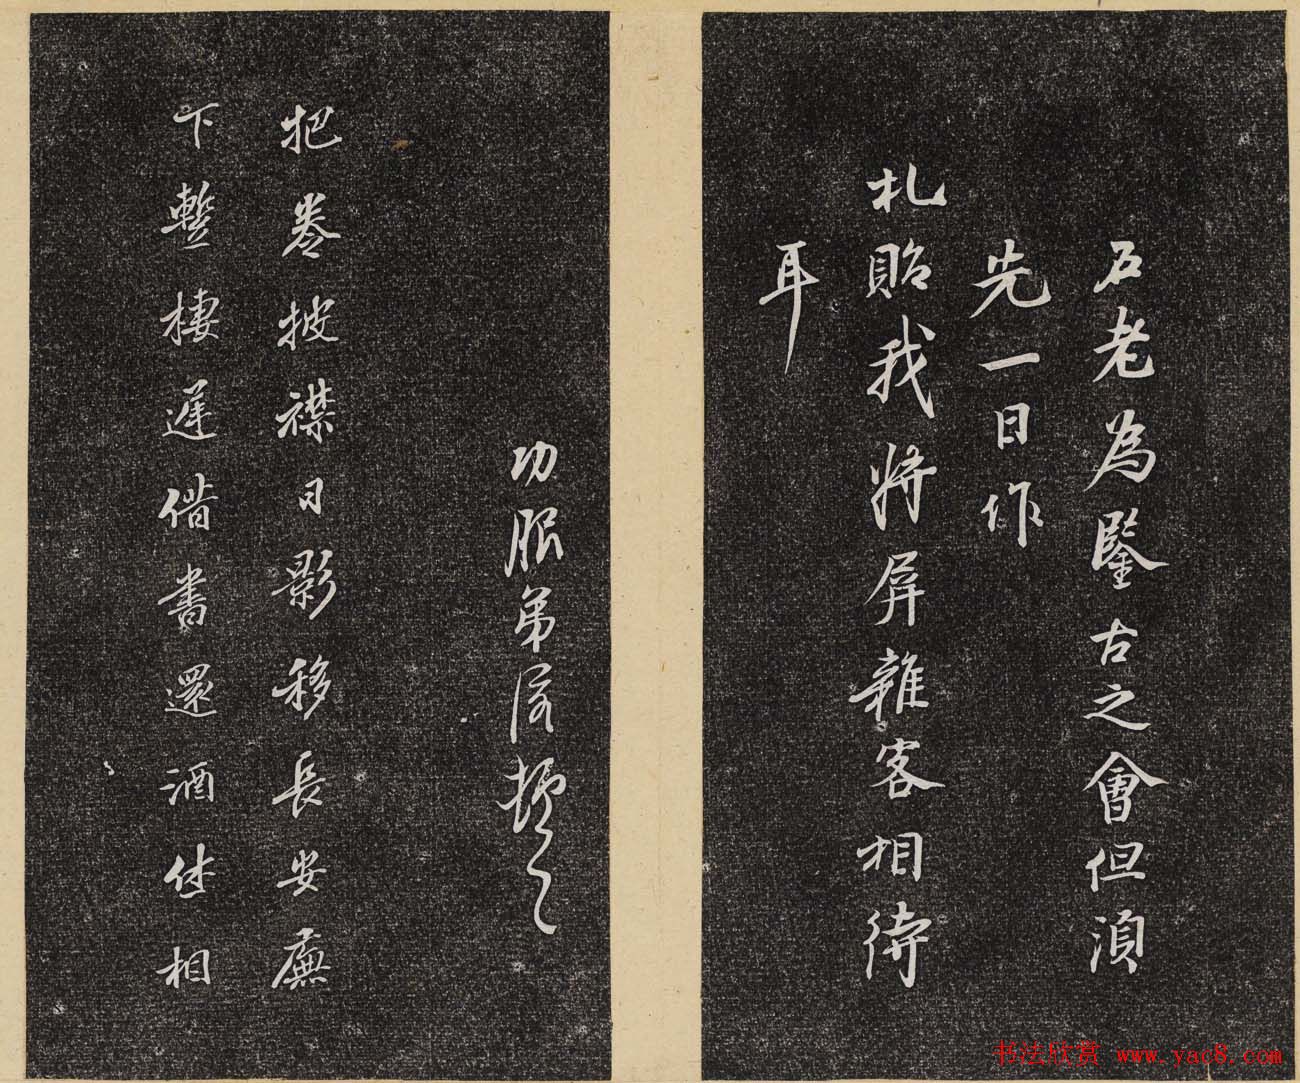 石老為鑒古之會但湏
先一日作
札貽我將屏雜客相待
耳
功服弟頓首
把卷披襟日影移長安廡
下蹔棲遲借書還酒付相
书法欣赏 www.yac8.com